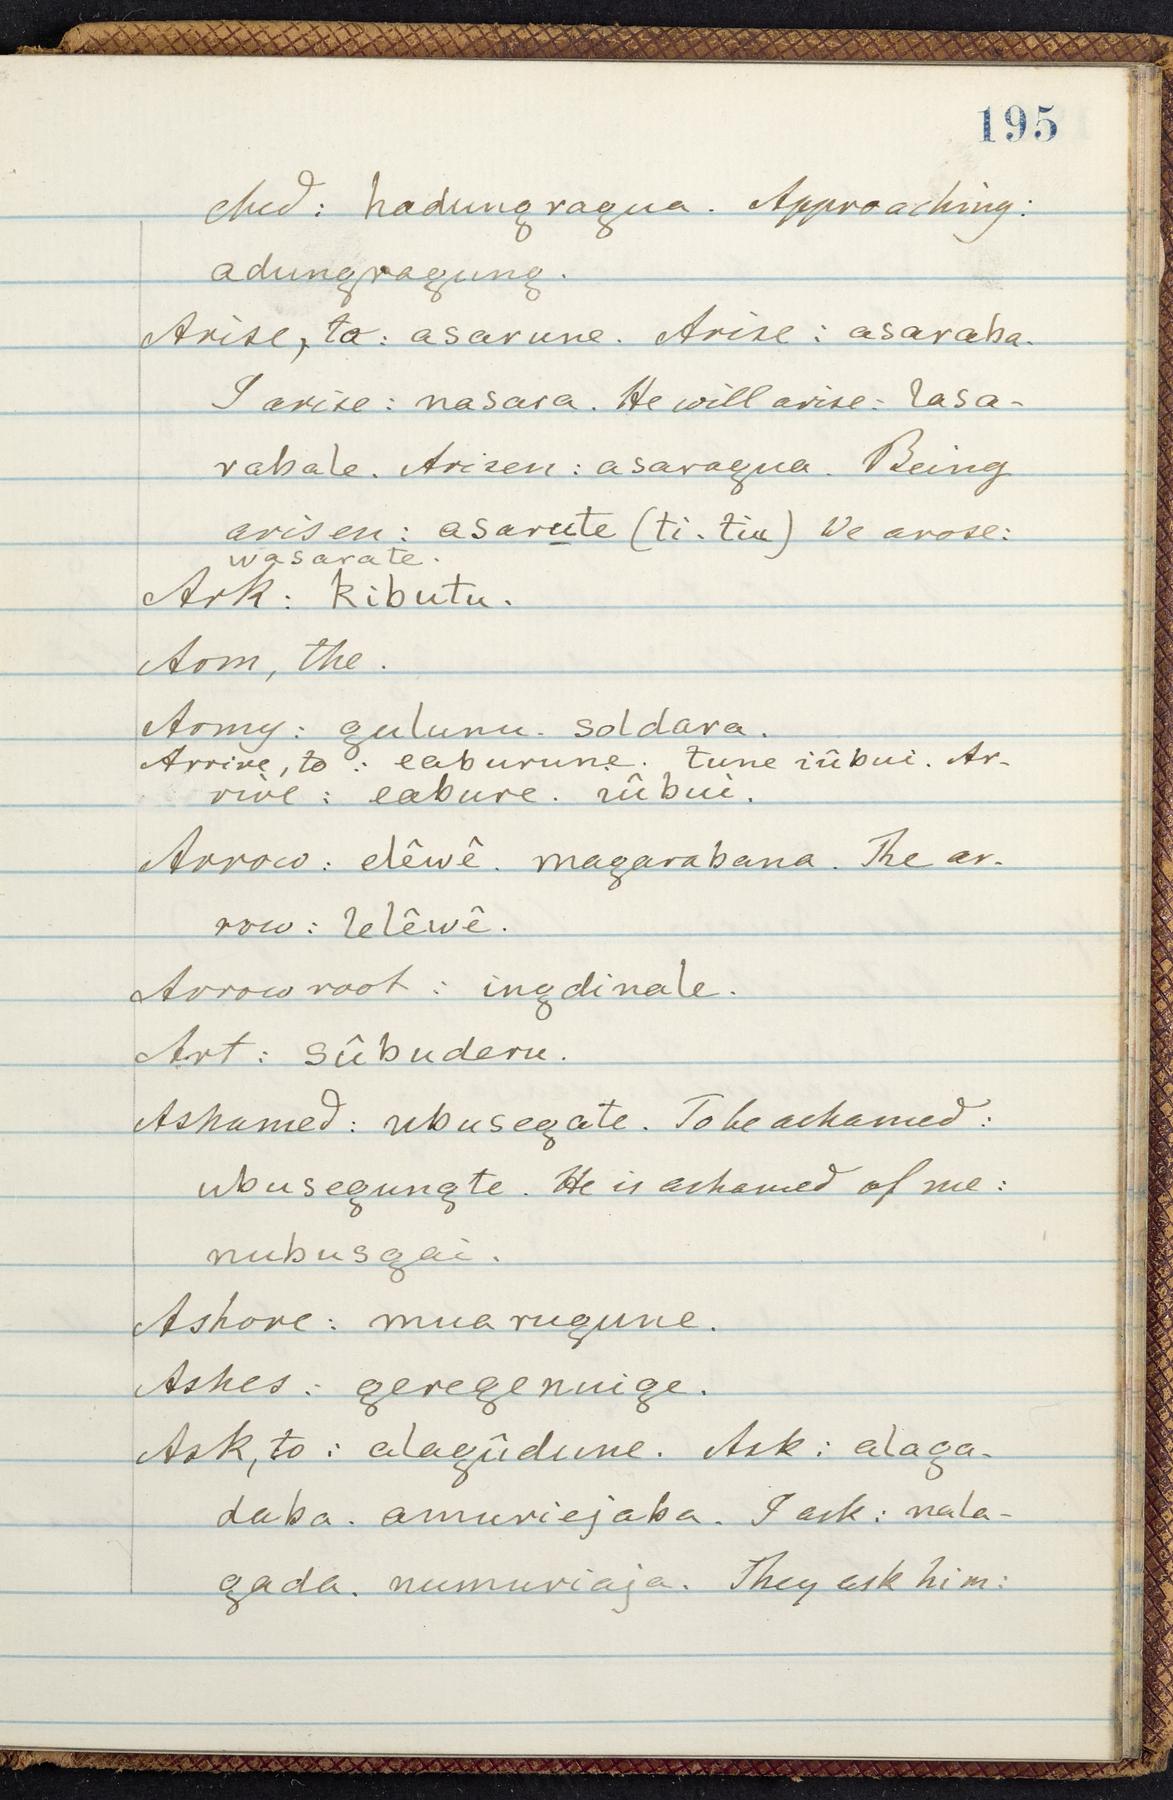 195
ched: hadungragua. Approaching:
adungragung.
Arise, to: asarune. Arise: asaraba.
I arise: nasara. He will arise: lasa-
rabale. Arisen: asaragua. Being
arisen: asarute (ti. tiu) We arose:
wasarate.
Ark: kibutu.
Arm, the.
Army: gulunu. soldara.
Arrive, to: eaburune. tune iûbui. Ar-
rive: eabure. iûbui.
Arrow: elêwê. magarabana. The ar-
row: lelêwê.
Arrowroot: ingdinale.
Art: sûbuderu.
Ashamed: ubusegate. To be ashamed:
ubusegungte. He is ashamed of me:
nubusgai.
Ashore: mua rugune.
Ashes: geregenuige.
Ask, to: alagûdune. Ask: alaga-
daba. amuriejaba. I ask: nala-
gada. numuriaja. They ask him: